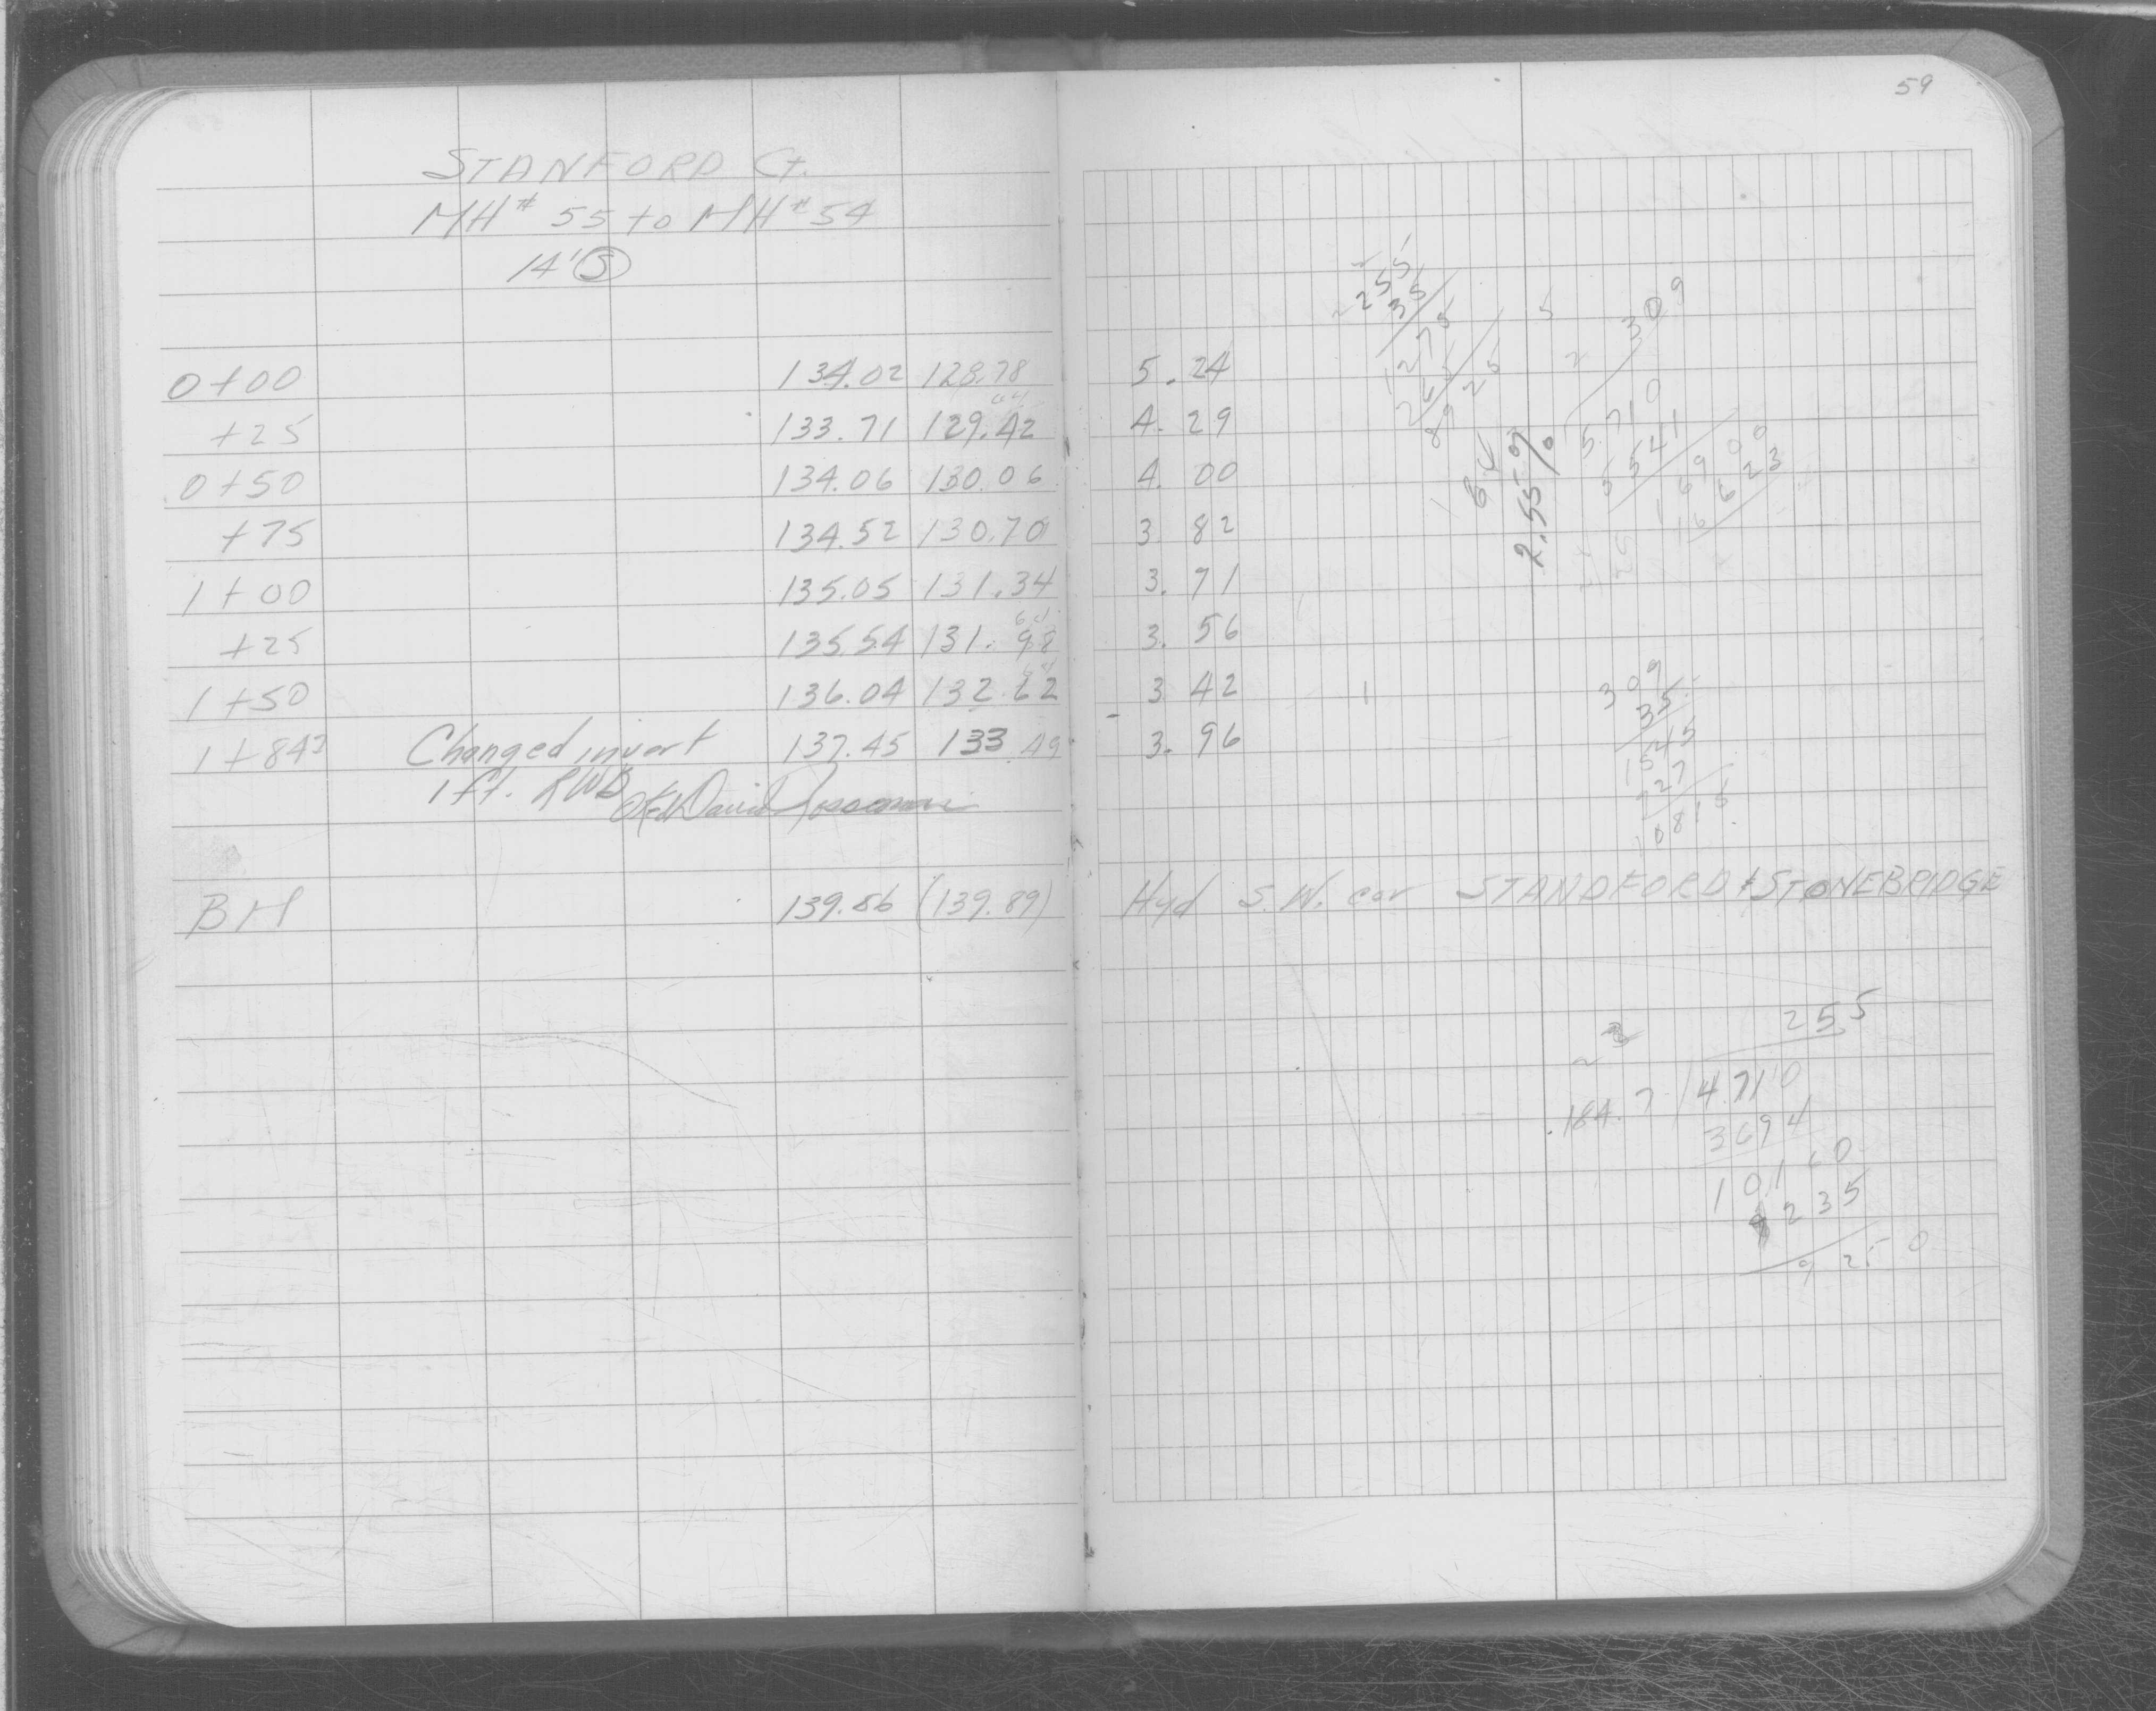 59
STANFORD Ct.
MH# 55 to MH# 54
14' S
0+00 134.02 128.78 5.24
+25 133.71 129.42 4.29
0+50 134.06 130.06 4.00
+75 134.52 130.70 3 82
1+00 135.05 131.34 3.71
+25 135.54 131.98 3.56
1+50 136.04 132.62 3 42
1+847 Changed invert 137.45 133.49 3.96
1 ft. RWB OKed David
BM 139.86 (139.89) Hyd S.W. cor STANDFORD & STONEBRIDGE
255
35
1275
765
8925
2.55%
309
5.710
5541
16900
16623
309
35
1545
927
10815
255
184.7 4.710
3694
10160
9235
9250